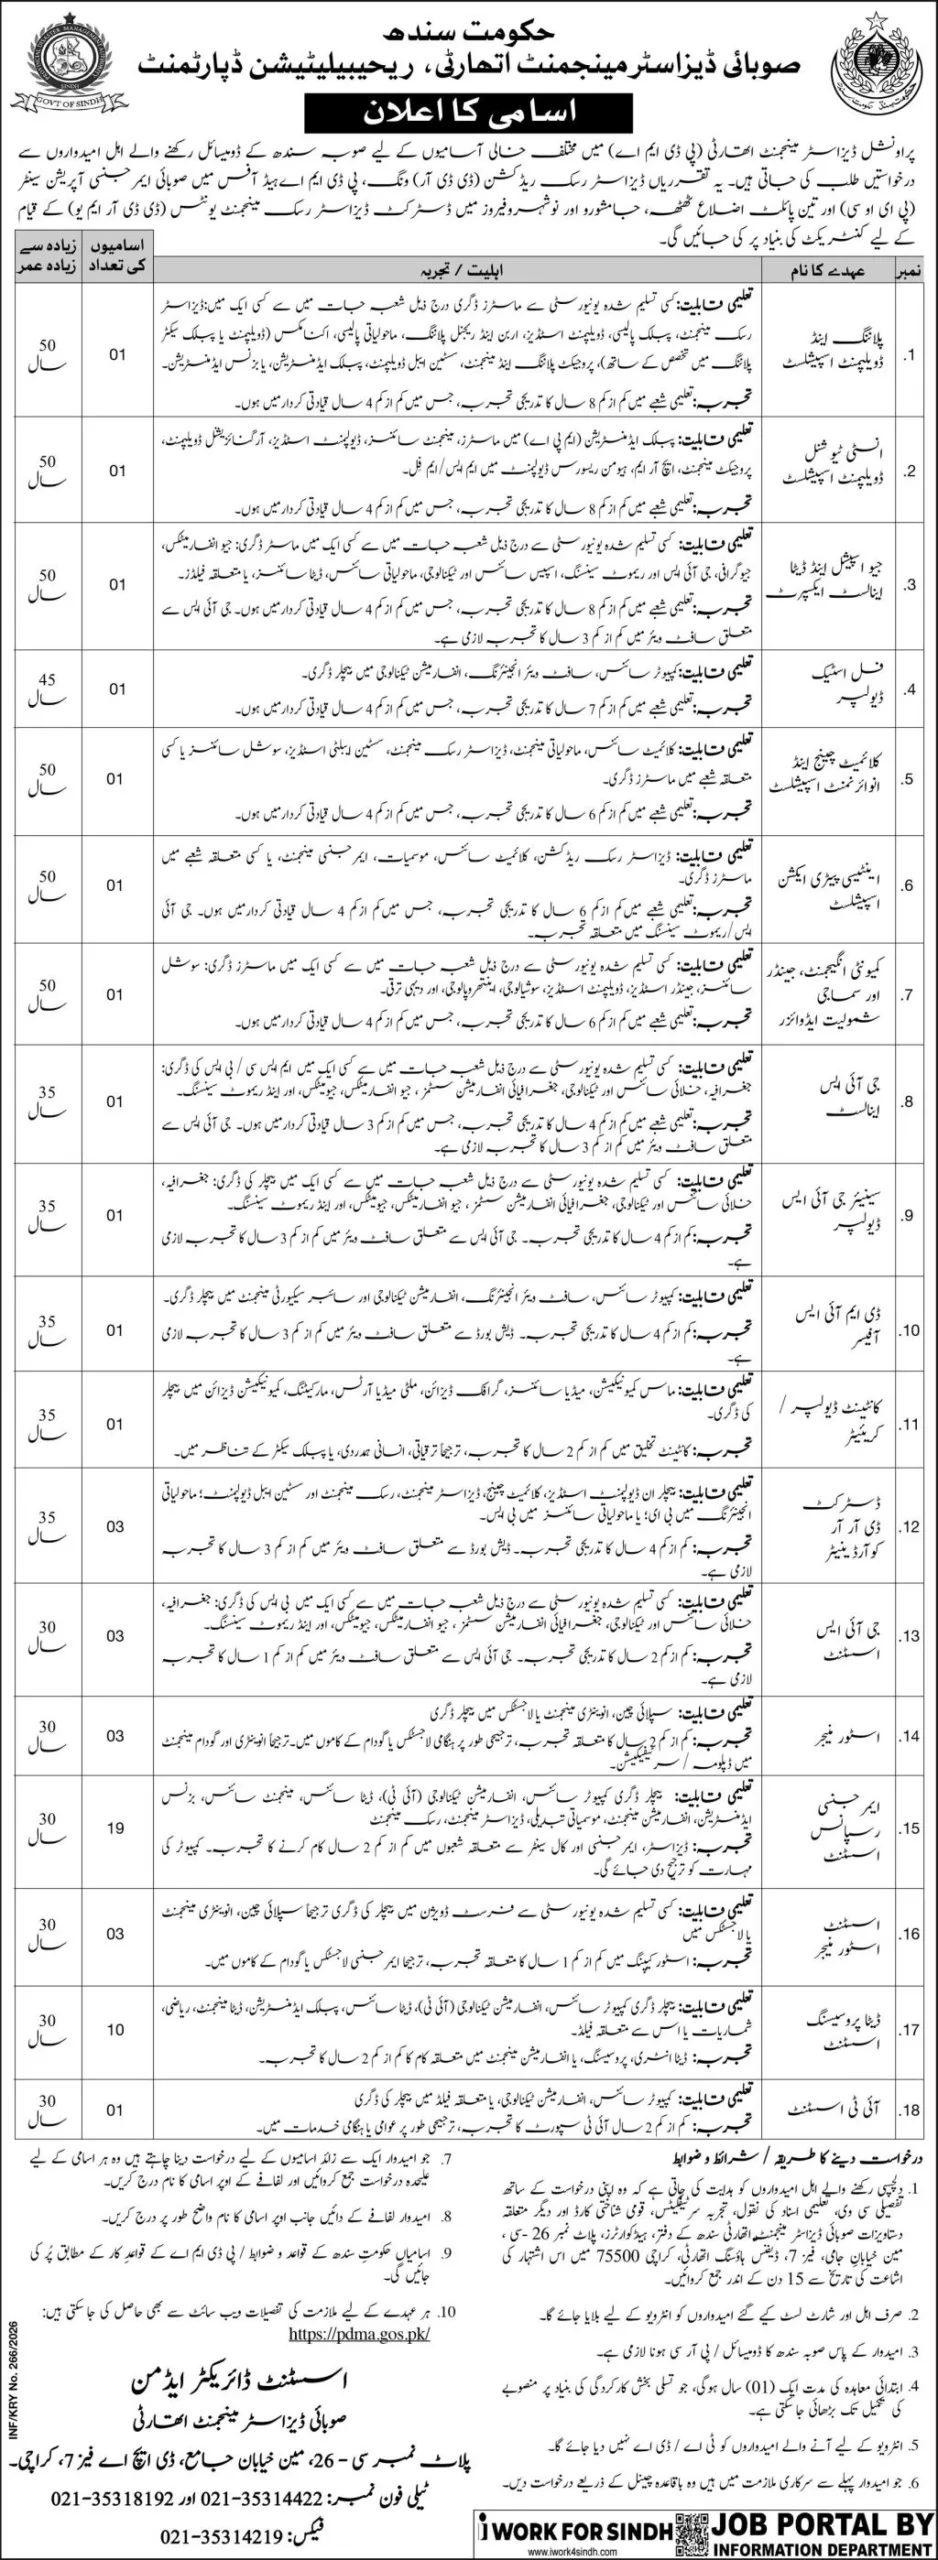 حکومت سندھ
صوبائی ڈیزاسٹر مینجمنٹ اتھارٹی، ریحیبیلیٹیشن ڈپارٹمنٹ
GOVT OF SINDH
اسامی کا اعلان
پراونشل ڈیزاسٹر مینجمنٹ اتھارٹی (پی ڈی ایم اے) میں مختلف خالی آسامیوں کے لیے صوبہ سندھ کے ڈومیسائل رکھنے والے اہل امیدواروں سے
درخواستیں طلب کی جاتی ہیں۔ یہ تقرریاں ڈیزاسٹر رسک ریڈکشن (ڈی ڈی آر) ونگ، پی ڈی ایم اے ہیڈ آفس میں صوبائی ایمرجنسی آپریشن سینٹر
(پی ای او سی) اور تین پائلٹ اضلاع ٹھٹھہ، جامشورو اور نوشہروفیروز میں ڈسٹرکٹ ڈیزاسٹر رسک مینجمنٹ یونٹس (ڈی ڈی آر ایم یو) کے قیام
کے لیے کنٹریکٹ کی بنیاد پر کی جائیں گی۔
نمبر عہدے کا نام اہلیت / تجربہ اسامیوں کی تعداد زیادہ سے زیادہ عمر
1. پلاننگ اینڈ ڈویلپمنٹ اسپیشلسٹ 01 50 سال
تعلیمی قابلیت: کسی تسلیم شدہ یونیورسٹی سے ماسٹرز ڈگری درج ذیل شعبہ جات میں سے کسی ایک میں: ڈیزاسٹر
رسک مینجمنٹ، پبلک پالیسی، ڈویلپمنٹ اسٹڈیز، اربن اینڈ ریجنل پلاننگ، ماحولیاتی پالیسی، اکنامکس (ڈویلپمنٹ یا پبلک سیکٹر
پلاننگ میں تخصص کے ساتھ)، پروجیکٹ پلاننگ اینڈ مینجمنٹ، سسٹین ایبل ڈویلپمنٹ، پبلک ایڈمنسٹریشن، یا بزنس ایڈمنسٹریشن۔
تجربہ: تعلیمی شعبے میں کم از کم 8 سال کا تدریجی تجربہ، جس میں کم از کم 4 سال قیادتی کردار میں ہوں۔
2. انسٹی ٹیوشنل ڈویلپمنٹ اسپیشلسٹ 01 50 سال
تعلیمی قابلیت: پبلک ایڈمنسٹریشن (ایم پی اے) میں ماسٹرز، مینجمنٹ سائنسز، ڈیولپمنٹ اسٹڈیز، آرگنائزیشنل ڈویلپمنٹ،
پروجیکٹ مینجمنٹ، ایچ آر ایم، ہیومن ریسورس ڈیولپمنٹ میں ایم ایس/ایم فل۔
تجربہ: تعلیمی شعبے میں کم از کم 8 سال کا تدریجی تجربہ، جس میں کم از کم 4 سال قیادتی کردار میں ہوں۔
3. جیو اسپیشل اینڈ ڈیٹا اینالسٹ ایکسپرٹ 01 50 سال
تعلیمی قابلیت: کسی تسلیم شدہ یونیورسٹی سے درج ذیل شعبہ جات میں سے کسی ایک میں ماسٹر ڈگری: جیو انفارمیٹکس،
جیوگرافی، جی آئی ایس اور ریموٹ سینسنگ، اسپیس سائنس اور ٹیکنالوجی، ماحولیاتی سائنس، ڈیٹا سائنسز، یا متعلقہ فیلڈز۔
تجربہ: تعلیمی شعبے میں کم از کم 8 سال کا تدریجی تجربہ، جس میں کم از کم 4 سال قیادتی کردار میں ہوں۔ جی آئی ایس سے
متعلق سافٹ ویئر میں کم از کم 3 سال کا تجربہ لازمی ہے۔
4. فل اسٹیک ڈیولپر 01 45 سال
تعلیمی قابلیت: کمپیوٹر سائنس، سافٹ ویئر انجینئرنگ، انفارمیشن ٹیکنالوجی میں بیچلر ڈگری۔
تجربہ: تعلیمی شعبے میں کم از کم 7 سال کا تدریجی تجربہ، جس میں کم از کم 4 سال قیادتی کردار میں ہوں۔
5. کلائمیٹ چینج اینڈ انوائرنمنٹ اسپیشلسٹ 01 50 سال
تعلیمی قابلیت: کلائمیٹ سائنس، ماحولیاتی مینجمنٹ، ڈیزاسٹر رسک مینجمنٹ، سسٹین ایبلٹی اسٹڈیز، سوشل سائنسز یا کسی
متعلقہ شعبے میں ماسٹرز ڈگری۔
تجربہ: تعلیمی شعبے میں کم از کم 6 سال کا تدریجی تجربہ، جس میں کم از کم 4 سال قیادتی کردار میں ہوں۔
6. اینٹیسی پیٹری ایکشن اسپیشلسٹ 01 50 سال
تعلیمی قابلیت: ڈیزاسٹر رسک ریڈکشن، کلائمیٹ سائنس، موسمیات، ایمرجنسی مینجمنٹ، یا کسی متعلقہ شعبے میں
ماسٹرز ڈگری۔
تجربہ: تعلیمی شعبے میں کم از کم 6 سال کا تدریجی تجربہ، جس میں کم از کم 4 سال قیادتی کردار میں ہوں۔ جی آئی
ایس/ریموٹ سینسنگ میں متعلقہ تجربہ۔
7. کمیونٹی انگیجمنٹ، جینڈر اور سماجی شمولیت ایڈوائزر 01 50 سال
تعلیمی قابلیت: کسی تسلیم شدہ یونیورسٹی سے درج ذیل شعبہ جات میں سے کسی ایک میں ماسٹرز ڈگری: سوشل
سائنسز، جینڈر اسٹڈیز، ڈویلپمنٹ اسٹڈیز، سوشیالوجی، اینتھروپالوجی، اور دیہی ترقی۔
تجربہ: تعلیمی شعبے میں کم از کم 6 سال کا تدریجی تجربہ، جس میں کم از کم 4 سال قیادتی کردار میں ہوں۔
8. جی آئی ایس اینالسٹ 01 35 سال
تعلیمی قابلیت: کسی تسلیم شدہ یونیورسٹی سے درج ذیل شعبہ جات میں سے کسی ایک میں ایم ایس سی / بی ایس کی ڈگری:
جغرافیہ، خلائی سائنس اور ٹیکنالوجی، جغرافیائی انفارمیشن سسٹمز، جیو انفارمیٹکس، جیومیٹکس، اور اینڈ ریموٹ سینسنگ۔
تجربہ: تعلیمی شعبے میں کم از کم 4 سال کا تدریجی تجربہ، جس میں کم از کم 3 سال قیادتی کردار میں ہوں۔ جی آئی ایس سے
متعلق سافٹ ویئر میں کم از کم 3 سال کا تجربہ لازمی ہے۔
9. سینیئر جی آئی ایس ڈیولپر 01 35 سال
تعلیمی قابلیت: کسی تسلیم شدہ یونیورسٹی سے درج ذیل شعبہ جات میں سے کسی ایک میں بیچلر کی ڈگری: جغرافیہ،
خلائی سائنس اور ٹیکنالوجی، جغرافیائی انفارمیشن سسٹمز، جیو انفارمیٹکس، جیومیٹکس، اور اینڈ ریموٹ سینسنگ۔
تجربہ: کم از کم 4 سال کا تدریجی تجربہ۔ جی آئی ایس سے متعلق سافٹ ویئر میں کم از کم 3 سال کا تجربہ لازمی
ہے۔
10. ڈی ایم آئی ایس آفیسر 01 35 سال
تعلیمی قابلیت: کمپیوٹر سائنس، سافٹ ویئر انجینئرنگ، انفارمیشن ٹیکنالوجی اور سائبر سیکیورٹی مینجمنٹ میں بیچلر ڈگری۔
تجربہ: کم از کم 4 سال کا تدریجی تجربہ۔ ڈیش بورڈ سے متعلق سافٹ ویئر میں کم از کم 3 سال کا تجربہ لازمی
ہے۔
11. کانٹینٹ ڈیولپر / کریئیٹر 01 35 سال
تعلیمی قابلیت: ماس کمیونیکیشن، میڈیا سائنسز، گرافک ڈیزائن، ملٹی میڈیا آرٹس، مارکیٹنگ، کمیونیکیشن ڈیزائن میں بیچلر
کی ڈگری۔
تجربہ: کانٹینٹ تخلیق میں کم از کم 2 سال کا تجربہ، ترجیحاً ترقیاتی، انسانی ہمدردی، یا پبلک سیکٹر کے تناظر میں۔
12. ڈسٹرکٹ ڈی آر آر کوآرڈینیٹر 03 35 سال
تعلیمی قابلیت: بیچلر ان ڈیولپمنٹ اسٹڈیز، کلائمیٹ چینج، ڈیزاسٹر مینجمنٹ، رسک مینجمنٹ اور سسٹین ایبل ڈیولپمنٹ؛ ماحولیاتی
انجینئرنگ میں بی ای؛ یا ماحولیاتی سائنسز میں بی ایس۔
تجربہ: کم از کم 4 سال کا تدریجی تجربہ۔ ڈیش بورڈ سے متعلق سافٹ ویئر میں کم از کم 3 سال کا تجربہ
لازمی ہے۔
13. جی آئی ایس اسسٹنٹ 03 30 سال
تعلیمی قابلیت: کسی تسلیم شدہ یونیورسٹی سے درج ذیل شعبہ جات میں سے کسی ایک میں بی ایس کی ڈگری: جغرافیہ،
خلائی سائنس اور ٹیکنالوجی، جغرافیائی انفارمیشن سسٹمز، جیو انفارمیٹکس، جیومیٹکس، اور اینڈ ریموٹ سینسنگ۔
تجربہ: کم از کم 2 سال کا تدریجی تجربہ۔ جی آئی ایس سے متعلق سافٹ ویئر میں کم از کم 1 سال کا تجربہ
لازمی ہے۔
14. اسٹور منیجر 03 30 سال
تعلیمی قابلیت: سپلائی چین، انوینٹری مینجمنٹ یا لاجسٹکس میں بیچلر ڈگری
تجربہ: کم از کم 2 سال کا متعلقہ تجربہ، ترجیحی طور پر ہنگامی لاجسٹکس یا گودام کے کاموں میں۔ ترجیحاً انوینٹری اور گودام مینجمنٹ
میں ڈپلومہ / سرٹیفکیشن۔
15. ایمرجنسی رسپانس اسسٹنٹ 19 30 سال
تعلیمی قابلیت: بیچلر ڈگری کمپیوٹر سائنس، انفارمیشن ٹیکنالوجی (آئی ٹی)، ڈیٹا سائنس، مینجمنٹ سائنس، بزنس
ایڈمنسٹریشن، انفارمیشن مینجمنٹ، موسمیاتی تبدیلی، ڈیزاسٹر مینجمنٹ، رسک مینجمنٹ
تجربہ: ڈیزاسٹر، ایمرجنسی اور کال سینٹر سے متعلقہ شعبوں میں کم از کم 2 سال کام کرنے کا تجربہ۔ کمپیوٹر کی
مہارت کو ترجیح دی جائے گی۔
16. اسسٹنٹ اسٹور منیجر 03 30 سال
تعلیمی قابلیت: کسی تسلیم شدہ یونیورسٹی سے فرسٹ ڈویژن میں بیچلر کی ڈگری ترجیحاً سپلائی چین، انوینٹری مینجمنٹ
یا لاجسٹکس میں
تجربہ: اسٹور کیپنگ میں کم از کم 1 سال کا متعلقہ تجربہ، ترجیحاً ایمرجنسی لاجسٹکس یا گودام کے کاموں میں۔
17. ڈیٹا پروسیسنگ اسسٹنٹ 10 30 سال
تعلیمی قابلیت: بیچلر ڈگری کمپیوٹر سائنس، انفارمیشن ٹیکنالوجی (آئی ٹی)، ڈیٹا سائنس، پبلک ایڈمنسٹریشن، ڈیٹا مینجمنٹ، ریاضی،
شماریات یا اس سے متعلقہ فیلڈ۔
تجربہ: ڈیٹا انٹری، پروسیسنگ، یا انفارمیشن مینجمنٹ میں متعلقہ کام کا کم از کم 2 سال کا تجربہ۔
18. آئی ٹی اسسٹنٹ 01 30 سال
تعلیمی قابلیت: کمپیوٹر سائنس، انفارمیشن ٹیکنالوجی، یا متعلقہ فیلڈ میں بیچلر کی ڈگری
تجربہ: کم از کم 2 سال آئی ٹی سپورٹ کا تجربہ، ترجیحی طور پر عوامی یا ہنگامی خدمات میں۔
درخواست دینے کا طریقہ / شرائط و ضوابط
1. دلچسپی رکھنے والے اہل امیدواروں کو ہدایت کی جاتی ہے کہ وہ اپنی درخواست کے ساتھ
تفصیلی سی وی، تعلیمی اسناد کی نقول، تجربہ سرٹیفکیٹس، قومی شناختی کارڈ اور دیگر متعلقہ
دستاویزات صوبائی ڈیزاسٹر مینجمنٹ اتھارٹی سندھ کے دفتر، ہیڈکوارٹرز، پلاٹ نمبر 26-سی،
مین خیابان جامی، فیز 7، ڈیفنس ہاؤسنگ اتھارٹی، کراچی 75500 میں اس اشتہار کی
اشاعت کی تاریخ سے 15 دن کے اندر جمع کروائیں۔
2. صرف اہل اور شارٹ لسٹ کیے گئے امیدواروں کو انٹرویو کے لیے بلایا جائے گا۔
3. امیدوار کے پاس صوبہ سندھ کا ڈومیسائل / پی آر سی ہونا لازمی ہے۔
4. ابتدائی معاہدہ کی مدت ایک (01) سال ہوگی، جو تسلی بخش کارکردگی کی بنیاد پر منصوبے
کی تکمیل تک بڑھائی جاسکتی ہے۔
5. انٹرویو کے لیے آنے والے امیدواروں کو ٹی اے / ڈی اے نہیں دیا جائے گا۔
6. جو امیدوار پہلے سے سرکاری ملازمت میں ہیں وہ باقاعدہ چینل کے ذریعے درخواست دیں۔
7. جو امیدوار ایک سے زائد اسامیوں کے لیے درخواست دینا چاہتے ہیں وہ ہر اسامی کے لیے
علیحدہ درخواست جمع کروائیں اور لفافے کے اوپر اسامی کا نام درج کریں۔
8. امیدوار لفافے کے دائیں جانب اوپر اسامی کا نام واضح طور پر درج کریں۔
9. اسامیاں حکومت سندھ کے قواعد و ضوابط / پی ڈی ایم اے کے قواعد کار کے مطابق پُر کی
جائیں گی۔
10. ہر عہدے کے لیے ملازمت کی تفصیلات ویب سائٹ سے بھی حاصل کی جاسکتی ہیں:
https://pdma.gos.pk/
اسسٹنٹ ڈائریکٹر ایڈمن
صوبائی ڈیزاسٹر مینجمنٹ اتھارٹی
پلاٹ نمبر سی - 26، مین خیابان جامع، ڈی ایچ اے فیز 7، کراچی۔
ٹیلی فون نمبر: 021-35314422 اور 021-35318192
فیکس: 021-35314219
INF/KRY No. 266/2026
i WORK FOR SINDH
www.iwork4sindh.com
JOB PORTAL BY
INFORMATION DEPARTMENT